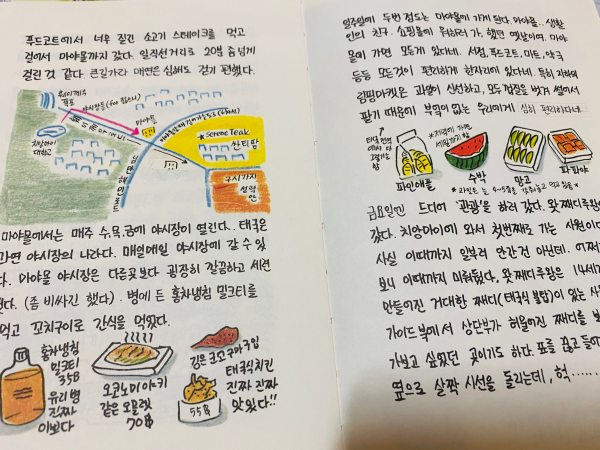 푸드코트에서 너무 질긴 소고기 스테이크를 먹고
걸어서 마야몰까지 갔다. 일직선거리로 20분 좀 넘게
걸린 것 같다. 큰길가라 매연은 심해도 걷기 편했다.
마야몰
치앙마이
대학교
* Serene Teak
싼티탐
구시가지
성벽
안
마야몰에서는 매주 수,목,금에 야시장이 열린다. 태국은
과연 야시장의 나라다. 매일매일 야시장에 갈 수 있
다. 마야몰 야시장은 다른곳보다 굉장히 깔끔하고 세련
된다. (좀 비싸긴 했다). 병에 든 홍차냉침 밀크티를
먹고 꼬치구이로 간식을 먹었다.
홍차냉침
밀크티
35B
유리병
진짜
이쁘다
오코노미야키
같은 오믈렛
70B
태국식치킨
진짜 진짜
맛있다!!
55B
일주일에 두번 정도는 마야몰에 가게 된다. 마야몰.. 생활
인의 친구. 쇼핑몰에 뭐하러 가, 했던 옛날이여. 마야
몰에 가면 모든게 있다네. 서점, 푸드코트, 마트, 약국
등등 모든것이 편리하게 한자리에 있다네. 특히 지하의
림핑마켓은 과일이 신선하고, 모든 껍질을 벗겨 썰어서
팔기 때문에 부엌이 없는 우리에게 심히 편리하다네.
파인애플
수박
망고
파파야
금요일엔 드디어 '관광'을 하러 갔다. 왓 째디루앙
갔다. 치앙마이에 와서 첫번째로 가는 사원이다
사실 이때까지 일부러 안간건 아닌데. 어쩌
보니 이때까지 미뤄뒀다. 왓 째디루앙은 14세기
만들어진 거대한 째디(태국식 불탑)이 있는 사
가이드북에서 상단부가 허물어진 째디를 보
가보고 싶었던 곳이기도 하다. 표를 끊고 들어
옆으로 살짝 시선을 돌리는데, 헉......